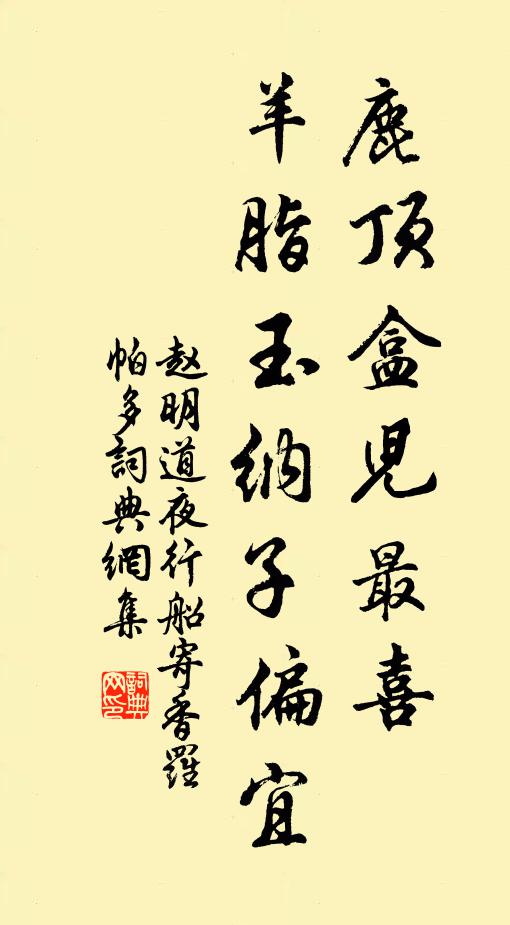 鹿顶盒児最喜
羊脂玉纳子偏宜
赵明道夜行船寄香羅
帕多詞典網集
詞典网印